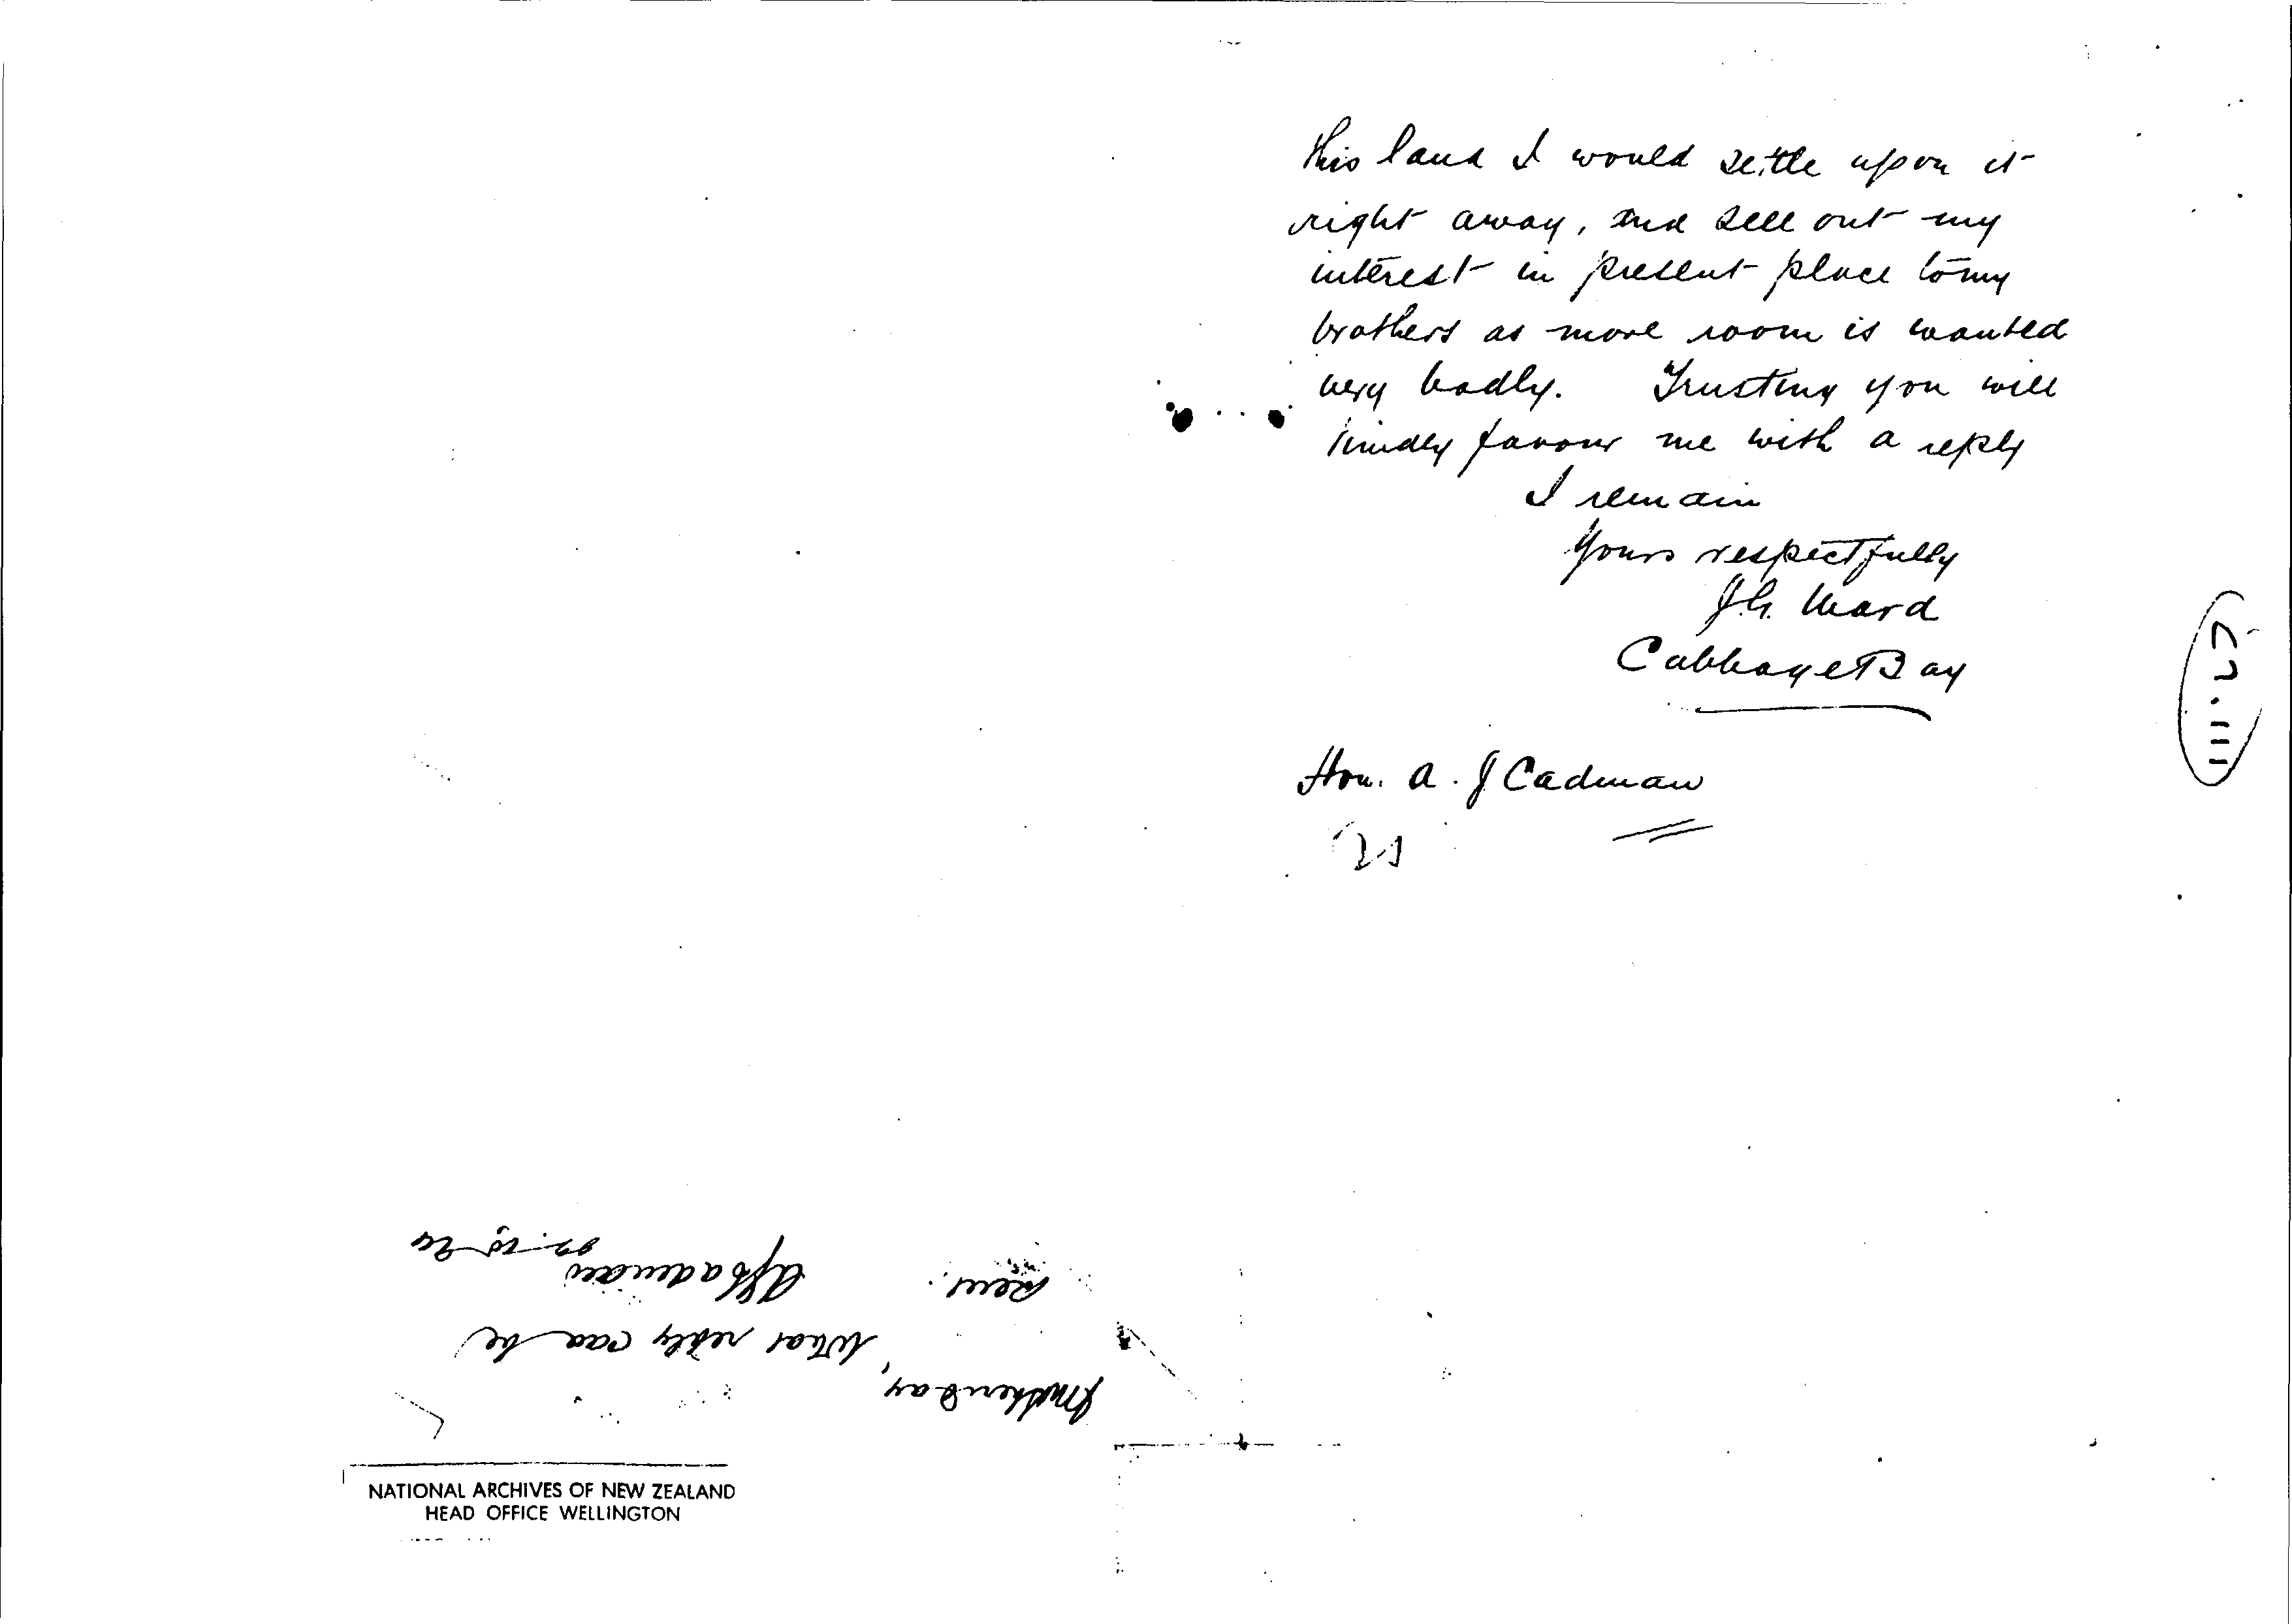 this land I would settle upon it
right away, and sell out my
interest in present place to my
brothers as more room is wanted
very badly. Trusting you will
kindly favour me with a reply
I remain
Yours respectfully
J.G. Ward
Cabbage Bay
Hon. A. J Cadman
What reply can be
AJCadman
NATIONAL ARCHIVES OF NEW ZEALAND
HEAD OFFICE WELLINGTON